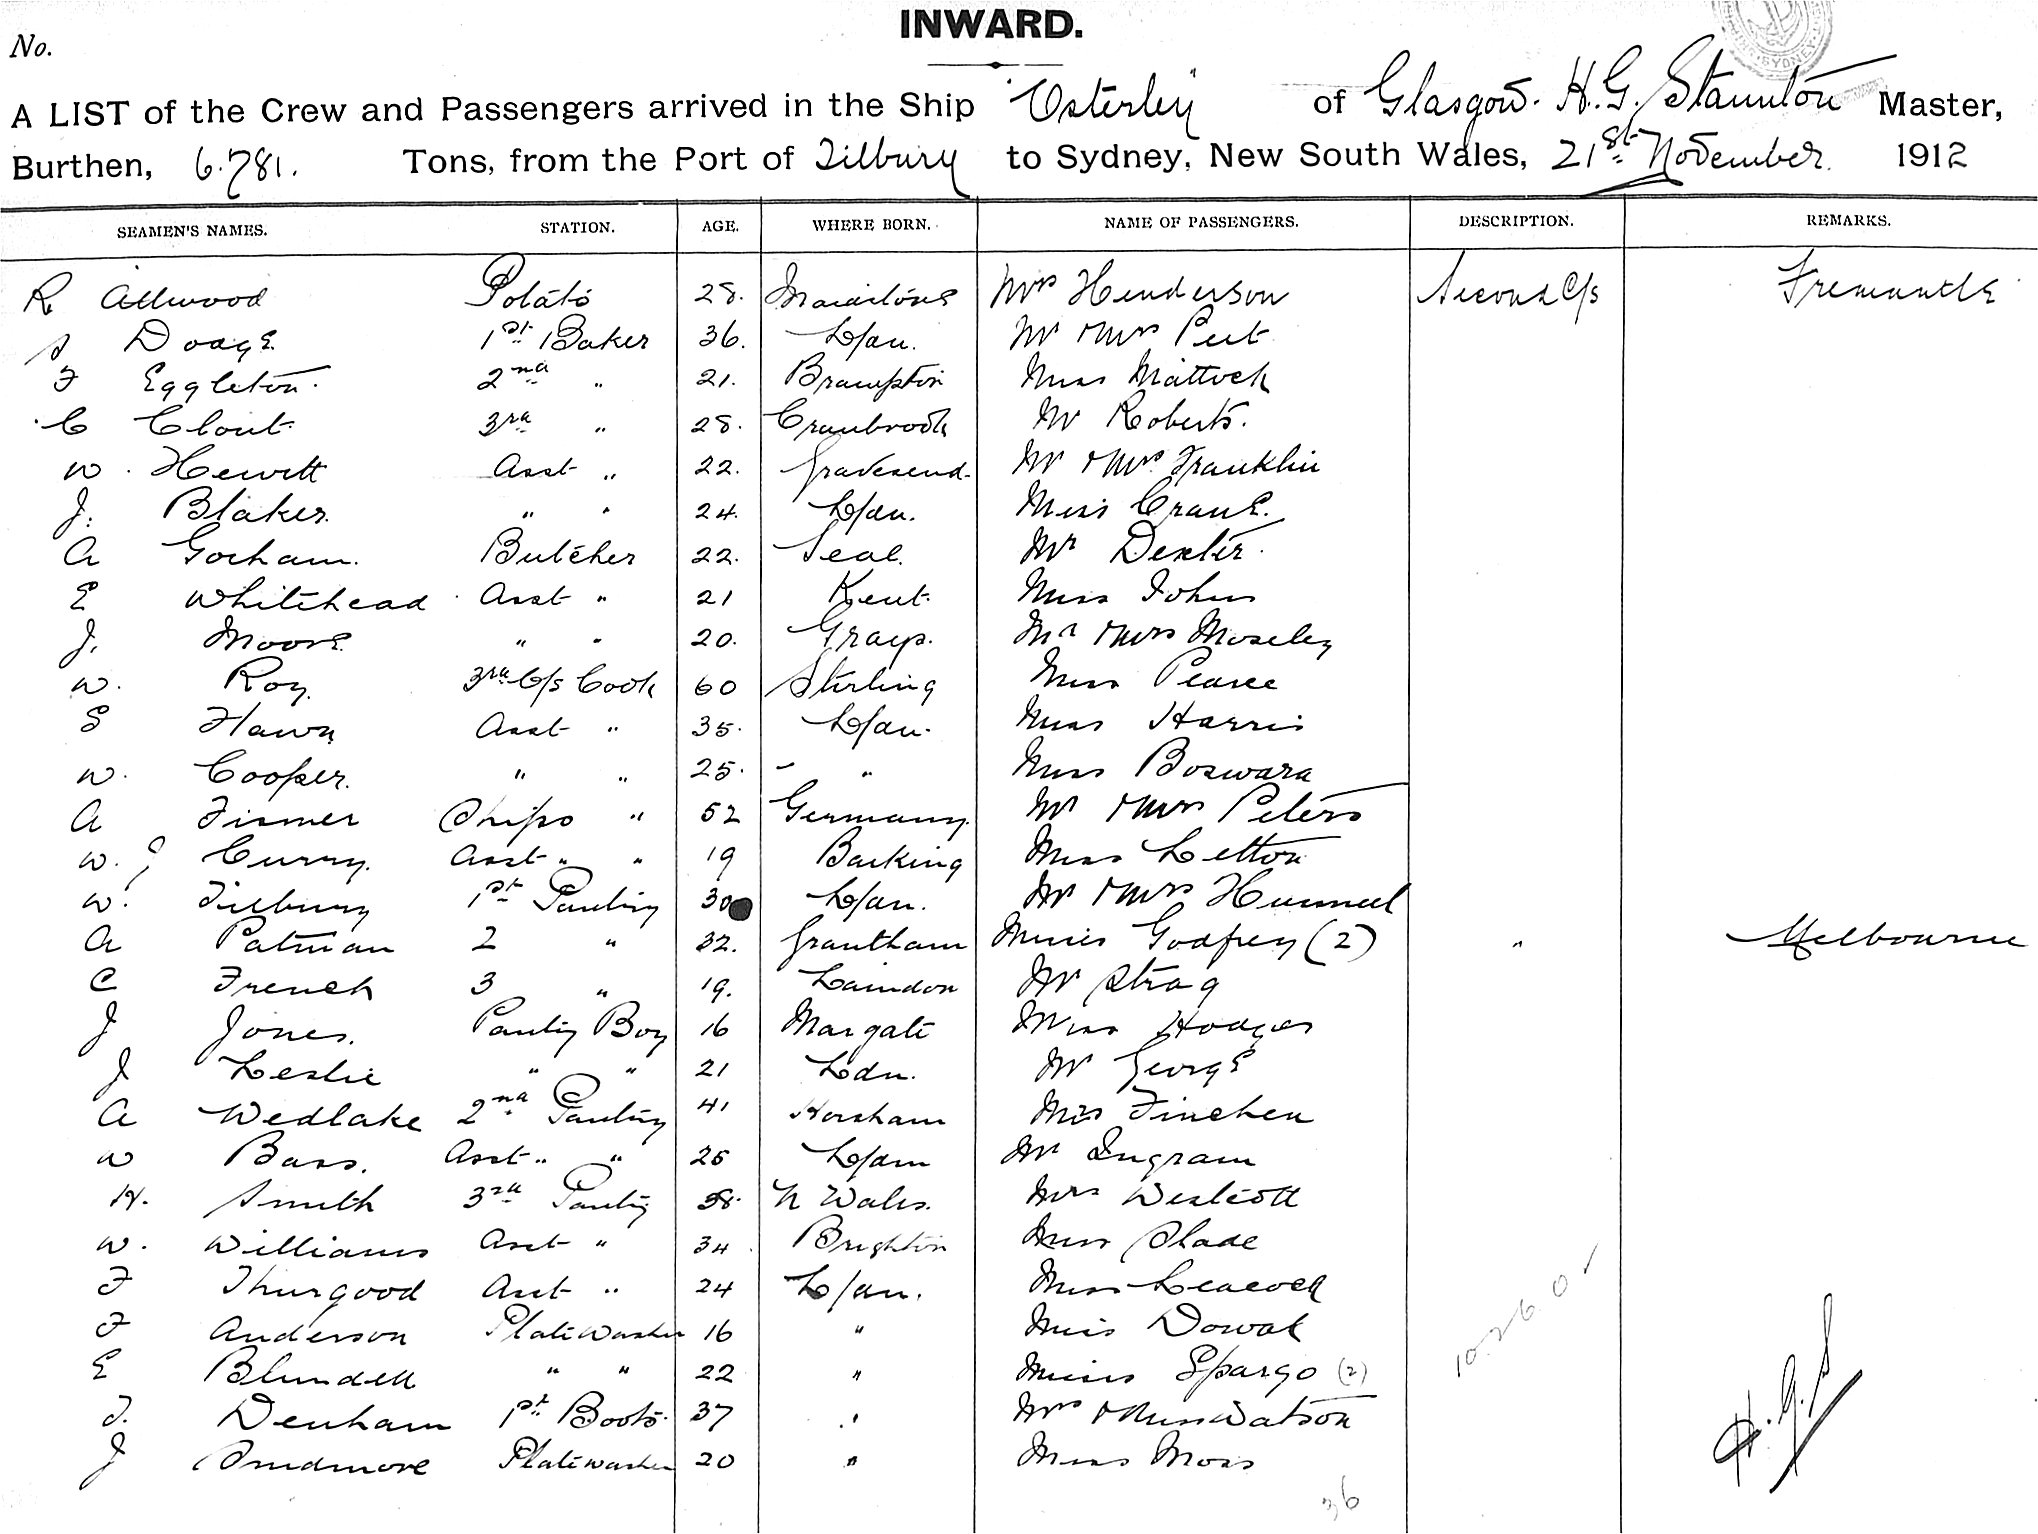 INWARD.
No.
A LIST of the Crew and Passengers arrived in the Ship "Osterley" of Glasgow. H.G. Staunton Master,
Burthen, 6.781. Tons, from the Port of Tilbury to Sydney, New South Wales, 21st November. 1912
SEAMEN'S NAMES. STATION. AGE. WHERE BORN. NAME OF PASSENGERS. DESCRIPTION. REMARKS.
R Attwood Potato 28. Maidstone Mrs Henderson Second C/s Fremantle
1st Baker 36. L/dn. Mr & Mrs Peet
F Eggleton. 2nd " 21. Brampton Miss Mattock
C Clout 3rd " 28. Cranbrook Mr Roberts.
W. Hewitt Asst " 22. Gravesend Mr & Mrs Franklin
J. Blaker " " 24. L/dn. Miss Crane.
A Gorham. Butcher 22. Seal. Mr Dexter.
E Whitehead Asst " 21 Kent. Miss Johns
J. Moore " " 20. Grays. Mr & Mrs Moseley
W. Roy 3rd C/s Cook 60 Stirling Miss Pearce
S Hawn Asst " 35. L/dn. Miss Harris
W. Cooper. " " 25. " " Miss Boswara
A Fismer Ships " 52 Germany. Mr & Mrs Peters
W. Curry. Asst " " 19 Barking Miss Letton
W. Tilbury 1st Pantry 30 L/dn. Mr & Mrs Hummel
A Patman 2 " 32. Grantham Misses Godfrey (2) " Melbourne
C French 3 " 19. Laindon Mr Strag
J Jones. Pantry Boy 16 Margate Miss Hodges
J Leslie " " 21 Ldn. Mr George
A Wedlake 2nd Pantry 41 Horsham Miss Finchen
W Bass. Asst " " 25 L/dn Mr Ingram
H. Smith 3rd Pantry 38. N Wales. Mrs Westcott
W. Williams Asst " 34 Brighton Miss Slade
F Thurgood Asst " 24 L/dn. Miss Leacock
F Anderson Platewasher 16 " Miss Dowal
E Blundell " " 22 " Misses Spargo (2)
J. Denham 1st Boots 37 " Mrs & Miss Watson
J Prudmore Platewasher 20 " Miss Moss
H.G.S
36